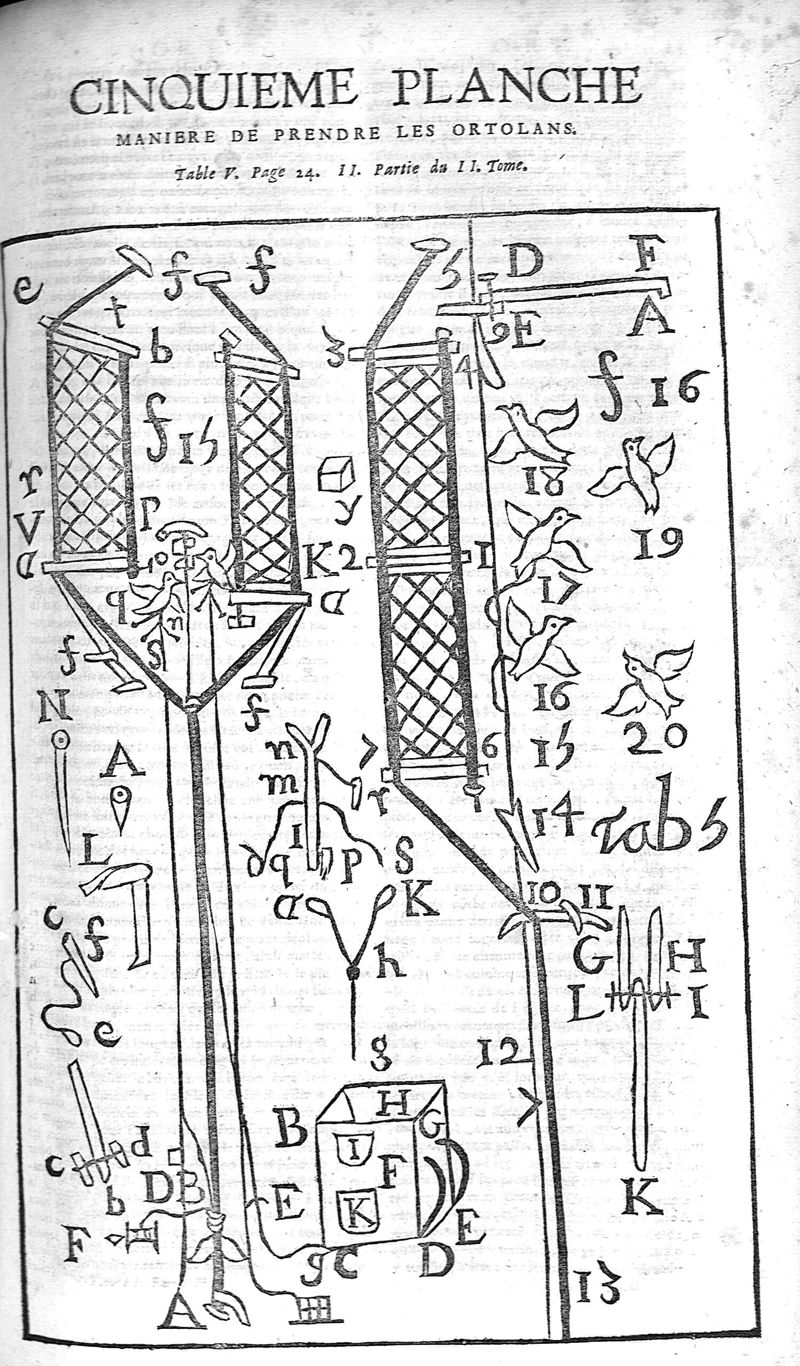 CINQUIEME PLANCHE
MANIERE DE PRENDRE LES ORTOLANS.
Table V. Page 24. II. Partie du II. Tome.
e t f f 5 D F
b 3 4 9 E A
f 15 f 16
r y 18 19
V P
a o K 2 1 17
q n a
f S 16 20
N f n 7 6 15
A m r
L 1 14 Tab 5
d q P S
a K 10 11
c f h G H
e L I
g 12
7
B H G
c d I
b D B F K
F E E K
g C D
A 13